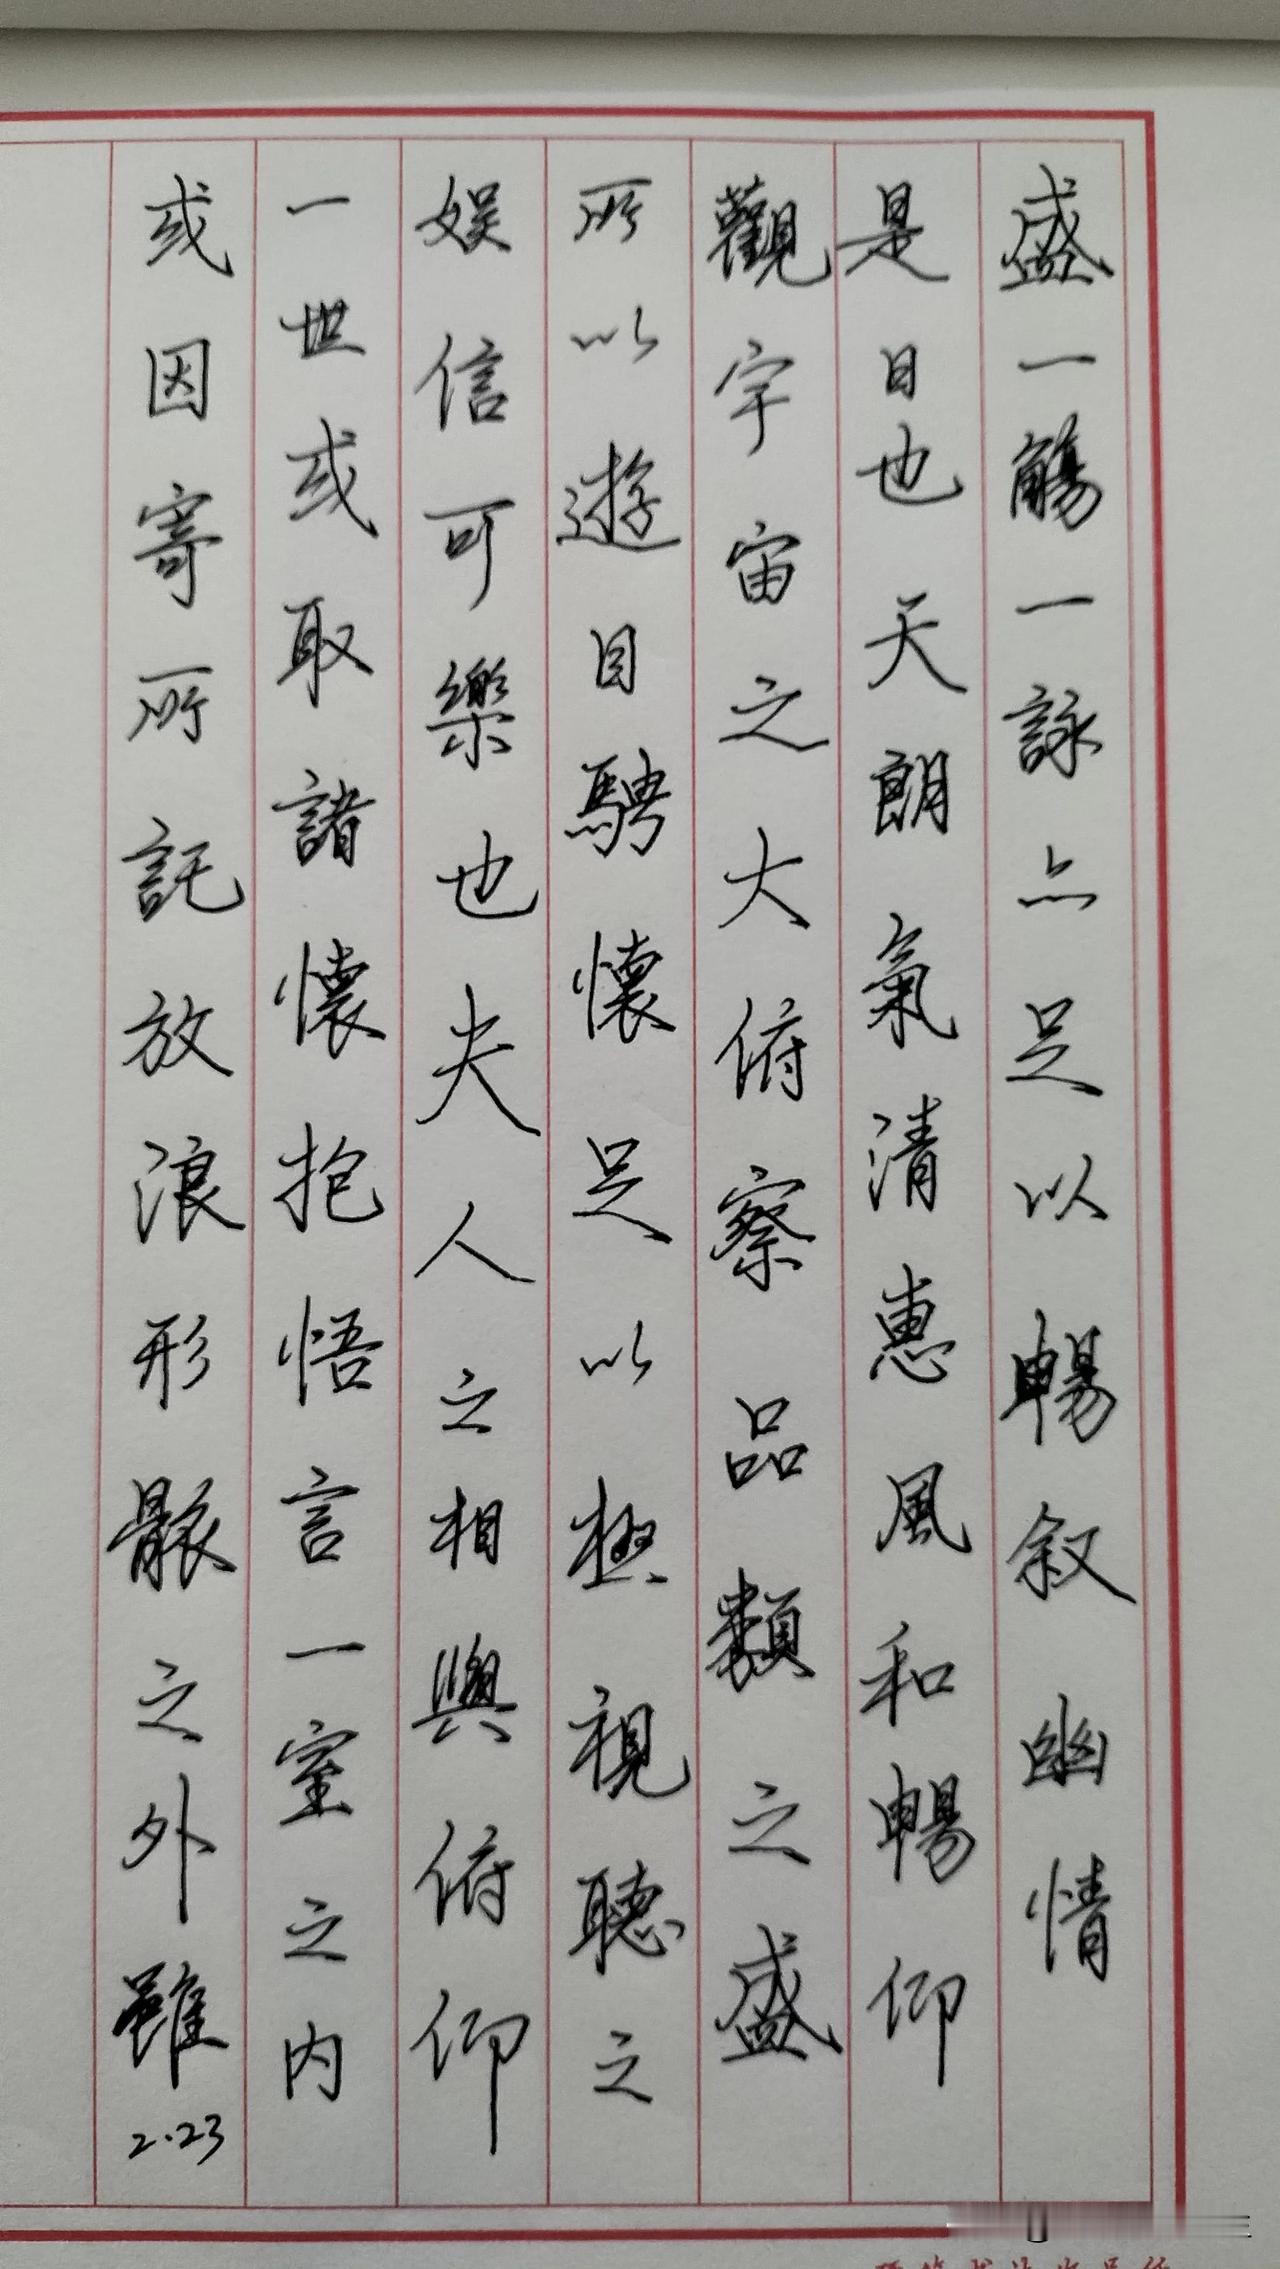 盛一觴一詠亦足以暢叙幽情
是日也天朗氣清惠風和暢仰
觀宇宙之大俯察品類之盛
所以遊目騁懷足以極視聽之
娱信可樂也夫人之相與俯仰
一世或取諸懷抱悟言一室之内
或因寄所託放浪形骸之外雖
2.23